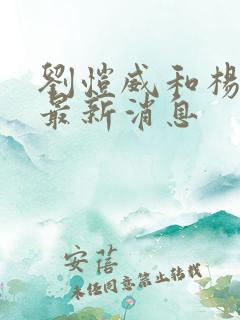 劉愷威和楊
最新消息
安蓓
未经同意禁止转载